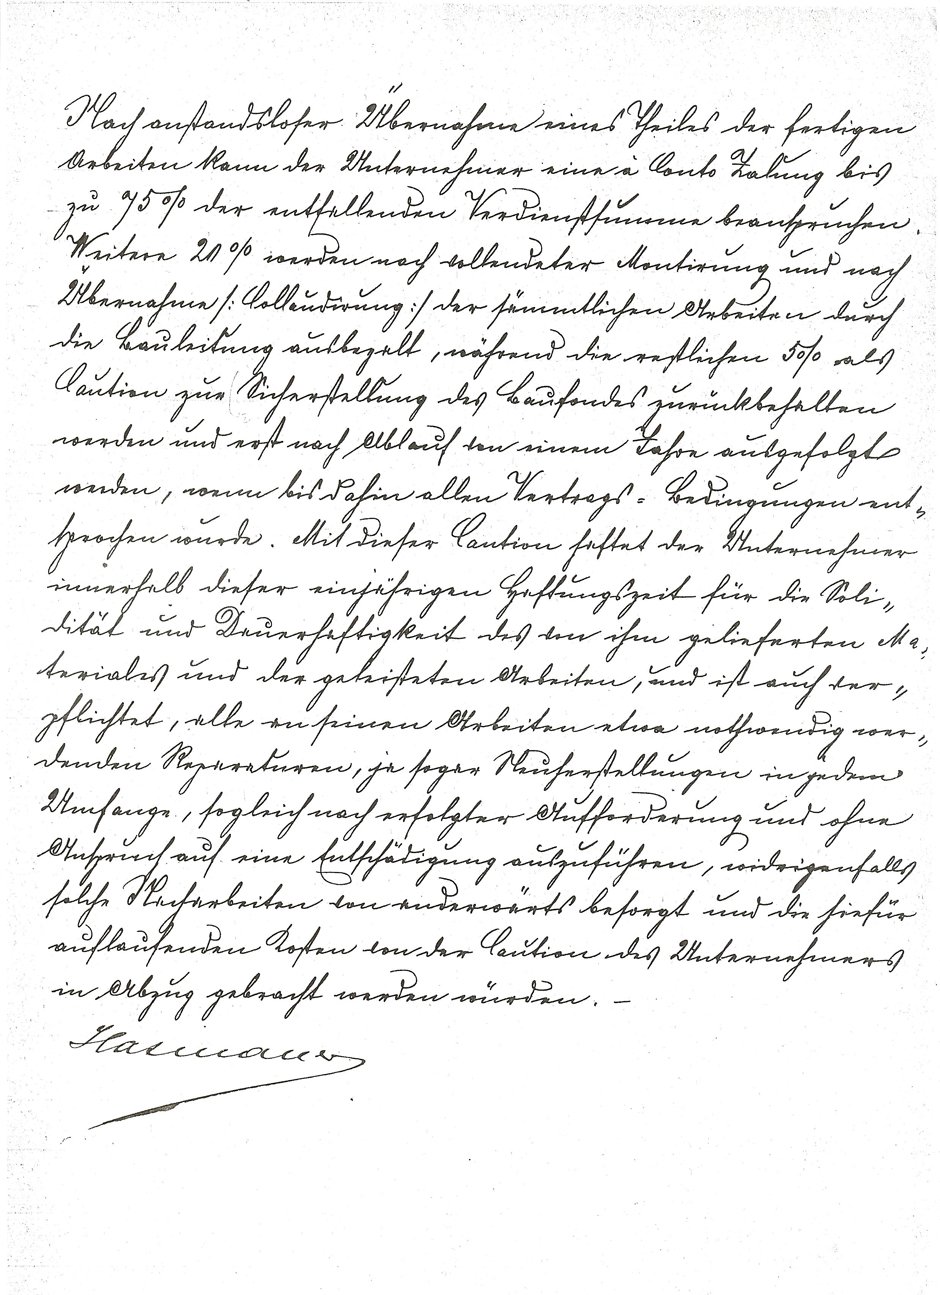 Nach anstandsloser Übernahme eines Theiles der fertigen
Arbeiten kann der Unternehmer eine à Conto Zalung bis
zu 75% der entfallenden Verdienstsumme beanspruchen.
Weitere 20% werden nach vollendeter Montirung und nach
Übernahme /: Collaudirung :/ der sämmtlichen Arbeiten durch
die Bauleitung ausbezalt, während die restlichen 5% als
Caution zur Sicherstellung des Baufondes zurückbehalten
werden und erst nach Ablauf von einem Jahre ausgefolgt
werden, wenn bis dahin allen Vertrags = Bedingungen ent„
sprochen wurde. Mit dieser Caution haftet der Unternehmer
innerhalb dieser einjährigen Haftungszeit für die Soli„
dität und Dauerhaftigkeit des von ihm gelieferten Ma„
teriales und der geleisteten Arbeiten, und ist auch ver„
pflichtet, alle an seinen Arbeiten etwa nothwendig wer„
denden Reparaturen, ja sogar Neuherstellungen in jedem
Umfange, sogleich nach erfolgter Aufforderung und ohne
Anspruch auf eine Entschädigung auszuführen, widrigenfalls
solche Nacharbeiten von anderwärts besorgt und die hiefür
auflaufenden Kosten von der Caution des Unternehmers
in Abzug gebracht werden würden. –